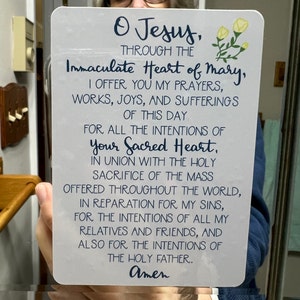 O Jesus,
THROUGH THE
Immaculate Heart of Mary,
I OFFER YOU MY PRAYERS,
WORKS, JOYS, AND SUFFERINGS
OF THIS DAY
FOR ALL THE INTENTIONS OF
your Sacred Heart,
IN UNION WITH THE HOLY
SACRIFICE OF THE MASS
OFFERED THROUGHOUT THE WORLD,
IN REPARATION FOR MY SINS,
FOR THE INTENTIONS OF ALL MY
RELATIVES AND FRIENDS, AND
ALSO FOR THE INTENTIONS OF
THE HOLY FATHER.
Amen